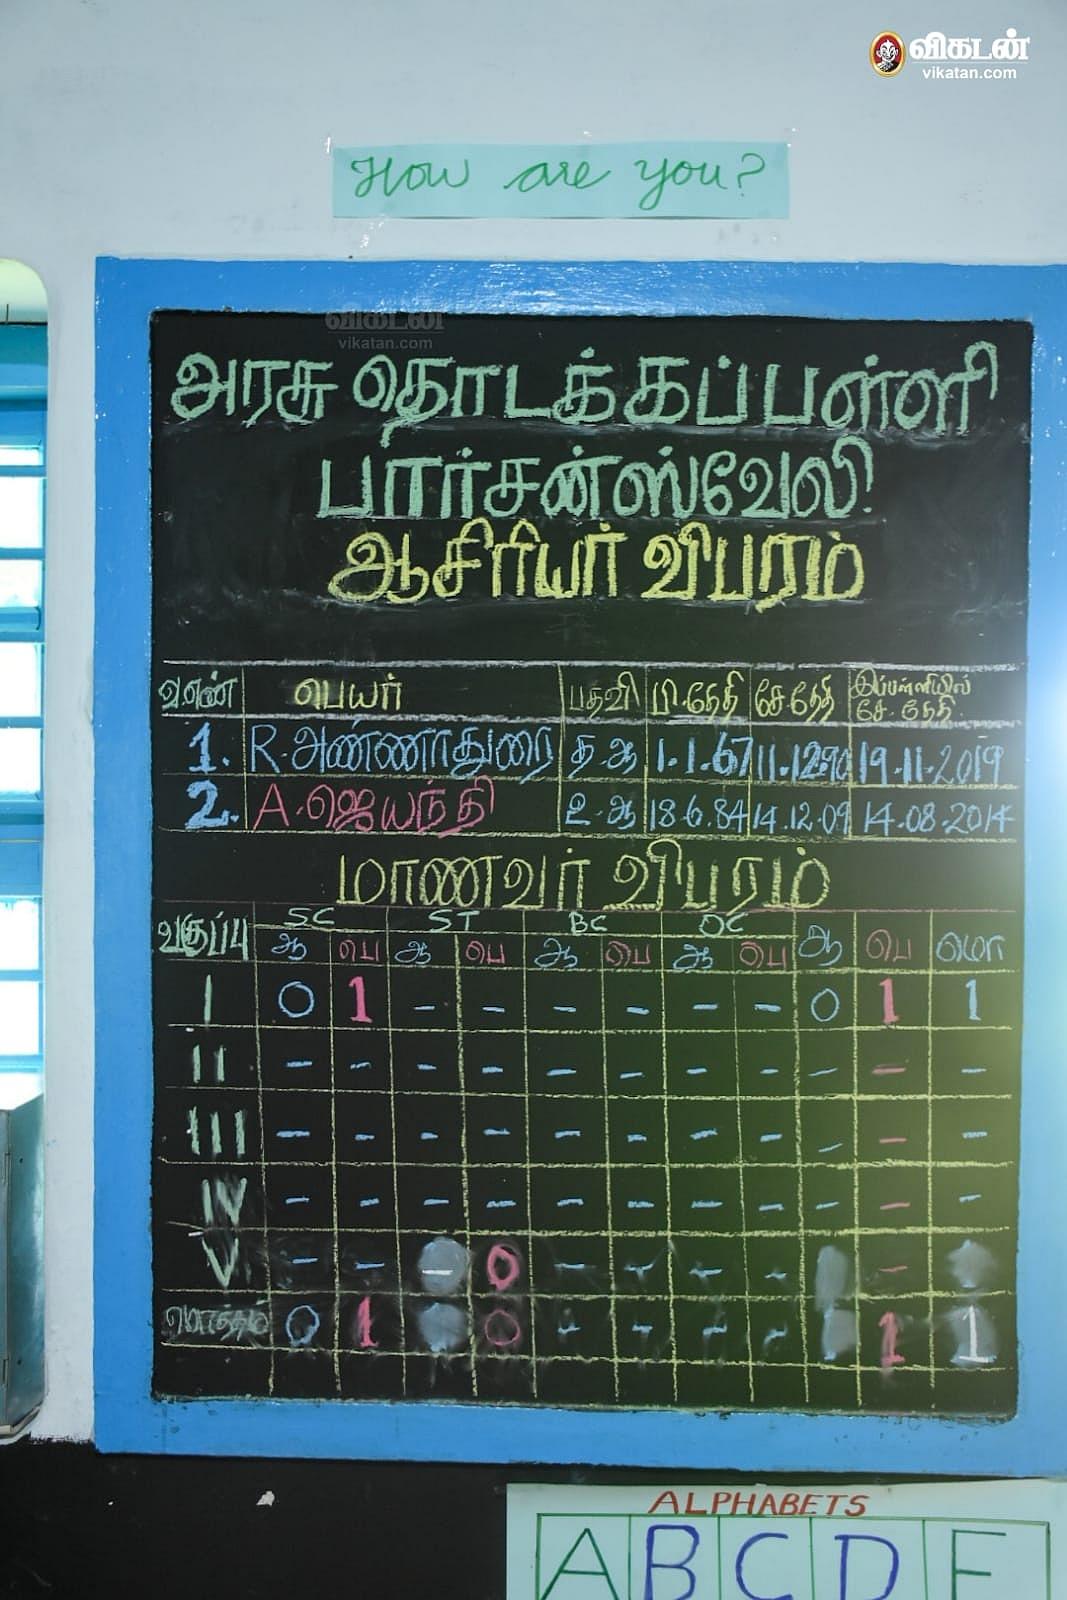 விகடன்
vikatan.com
How are you?
விகடன்
vikatan.com
அரசு தொடக்கப்பள்ளி
பார்சன்ஸ்வேலி
ஆசிரியர் விபரம்
வ.எண் பெயர் பதவி பி.தேதி சே.தேதி இப்பள்ளியில் சே.தேதி
1. R.அண்ணாதுரை த.ஆ 1.1.67 11.12.90 19.11.2019
2. A.ஜெயந்தி உ.ஆ 18.6.84 14.12.09 14.08.2014
மாணவர் விபரம்
வகுப்பு SC ST BC OC
ஆ பெ ஆ பெ ஆ பெ ஆ பெ ஆ பெ மொ
I 0 1 - - - - - - 0 1 1
II - - - - - - - - - - -
III - - - - - - - - - - -
IV - - - - - - - - - - -
V - - - 0 - - - - -
மொத்தம் 0 1 0 - - - - 1 1
ALPHABETS
A B C D E